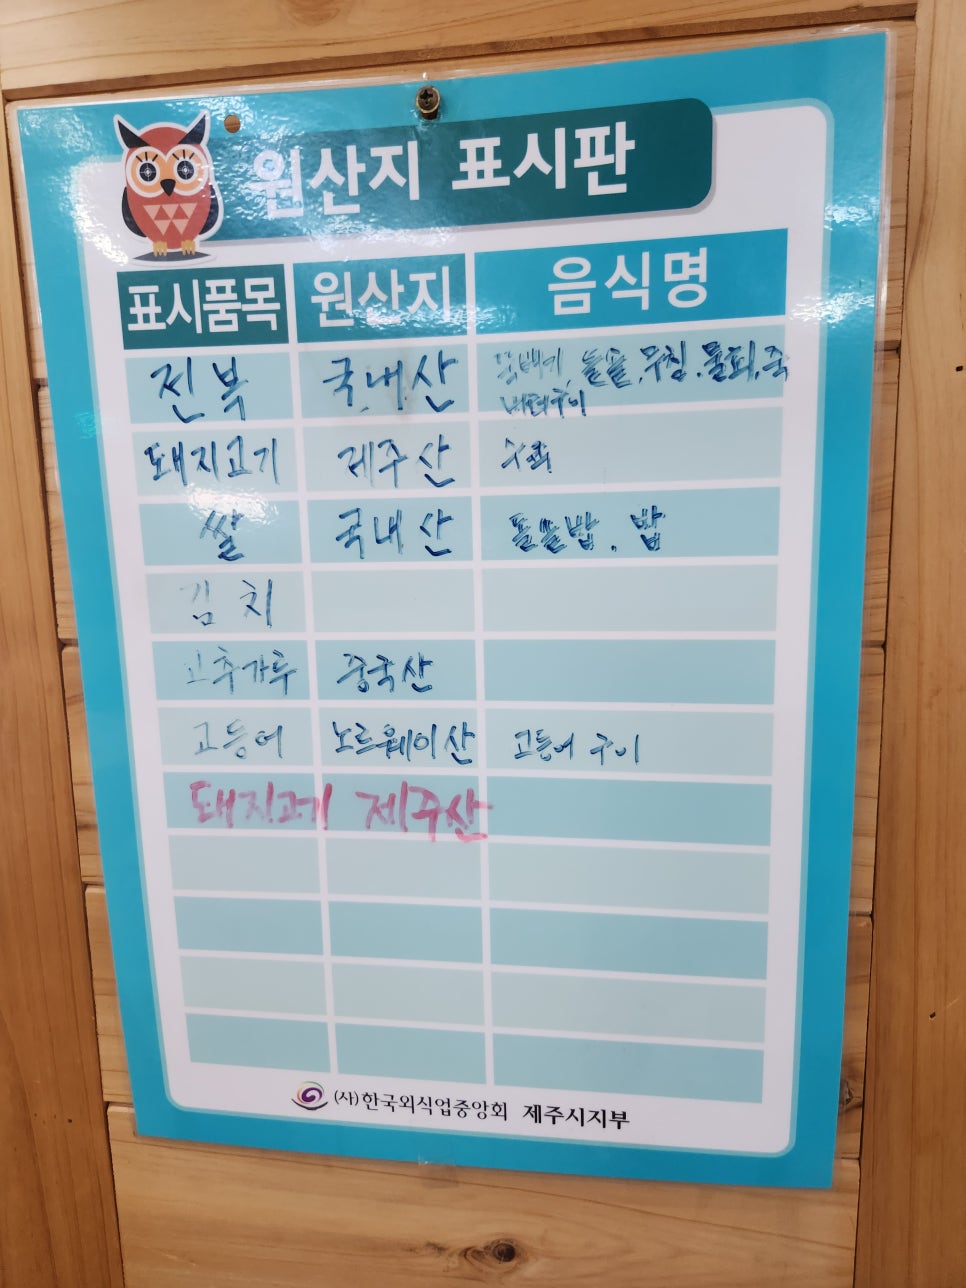 원산지 표시판
표시품목 원산지 음식명
전복 국내산 뚝배기, 돌솥, 무침, 물회, 죽
버터구이
돼지고기 제주산
쌀 국내산 돌솥밥, 밥
김치
고추가루 중국산
고등어 노르웨이산 고등어 구이
돼지고기 제주산
(사)한국외식업중앙회 제주시지부